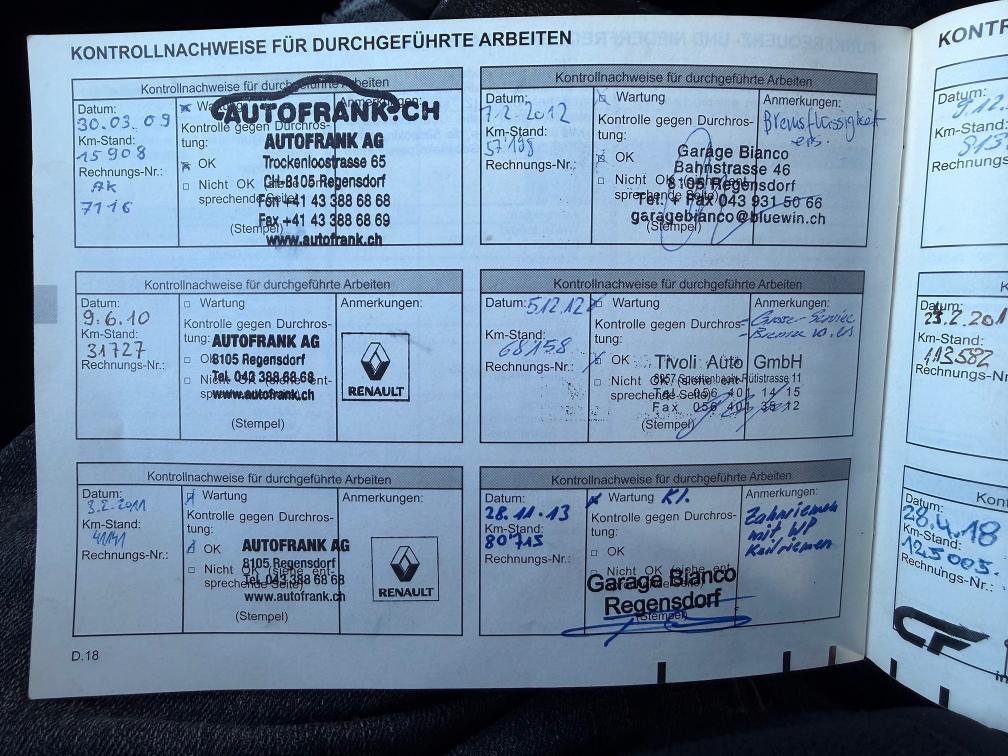 KONTROLLNACHWEISE FÜR DURCHGEFÜHRTE ARBEITEN
Kontrollnachweise für durchgeführte Arbeiten
Datum:
30.03.09
Km-Stand:
15908
Rechnungs-Nr.:
AK
7116
Wartung
Anmerkungen:
Kontrolle gegen Durchros-
tung:
OK
Nicht OK (siehe ent-
sprechende Seite)
(Stempel)
AUTOFRANK.CH
AUTOFRANK AG
Trockenloostrasse 65
CH-8105 Regensdorf
Fon +41 43 388 68 68
Fax +41 43 388 68 69
www.autofrank.ch
Kontrollnachweise für durchgeführte Arbeiten
Datum:
9.6.10
Km-Stand:
31727
Rechnungs-Nr.:
Wartung
Kontrolle gegen Durchros-
tung:
OK
Nicht OK (siehe ent-
sprechende Seite)
(Stempel)
AUTOFRANK AG
8105 Regensdorf
Tel. 043 388 68 68
www.autofrank.ch
Anmerkungen:
RENAULT
Kontrollnachweise für durchgeführte Arbeiten
Datum:
3.2.2011
Km-Stand:
41141
Rechnungs-Nr.:
Wartung
Kontrolle gegen Durchros-
tung:
OK
Nicht OK (siehe ent-
sprechende Seite)
(Stempel)
AUTOFRANK AG
8105 Regensdorf
Tel. 043 388 68 68
www.autofrank.ch
Anmerkungen:
RENAULT
D.18
Kontrollnachweise für durchgeführte Arbeiten
Datum:
7.2.2012
Km-Stand:
57199
Rechnungs-Nr.:
Wartung
Kontrolle gegen Durchros-
tung:
OK
Nicht OK (siehe ent-
sprechende Seite)
(Stempel)
Garage Bianco
Bahnstrasse 46
8105 Regensdorf
Tel. + Fax 043 931 50 66
garagebianco@bluewin.ch
Anmerkungen:
Bremsflüssigkeit
ers.
Kontrollnachweise für durchgeführte Arbeiten
Datum: 5.12.12
Km-Stand:
68158
Rechnungs-Nr.:
Wartung
Kontrolle gegen Durchros-
tung:
OK
Nicht OK (siehe ent-
sprechende Seite)
(Stempel)
Tivoli Auto GmbH
Rütistrasse 11
Tel. 056 401 14 15
Fax 056 401 35 12
Anmerkungen:
- Grosser Service
Kontrollnachweise für durchgeführte Arbeiten
Datum:
28.11.13
Km-Stand:
80715
Rechnungs-Nr.:
Wartung Kl.
Kontrolle gegen Durchros-
tung:
OK
Nicht OK (siehe ent-
sprechende Seite)
(Stempel)
Garage Bianco
Regensdorf
Anmerkungen:
Zahnriemen
mit WP
Keilriemen
KONTR
Datum:
Km-Stand:
Rechnungs-
Datum:
Km-Stand:
113582
Rechnungs-Nr
Kon
Datum:
28.4.18
Km-Stand:
125003.
Rechnungs-Nr.:
CF